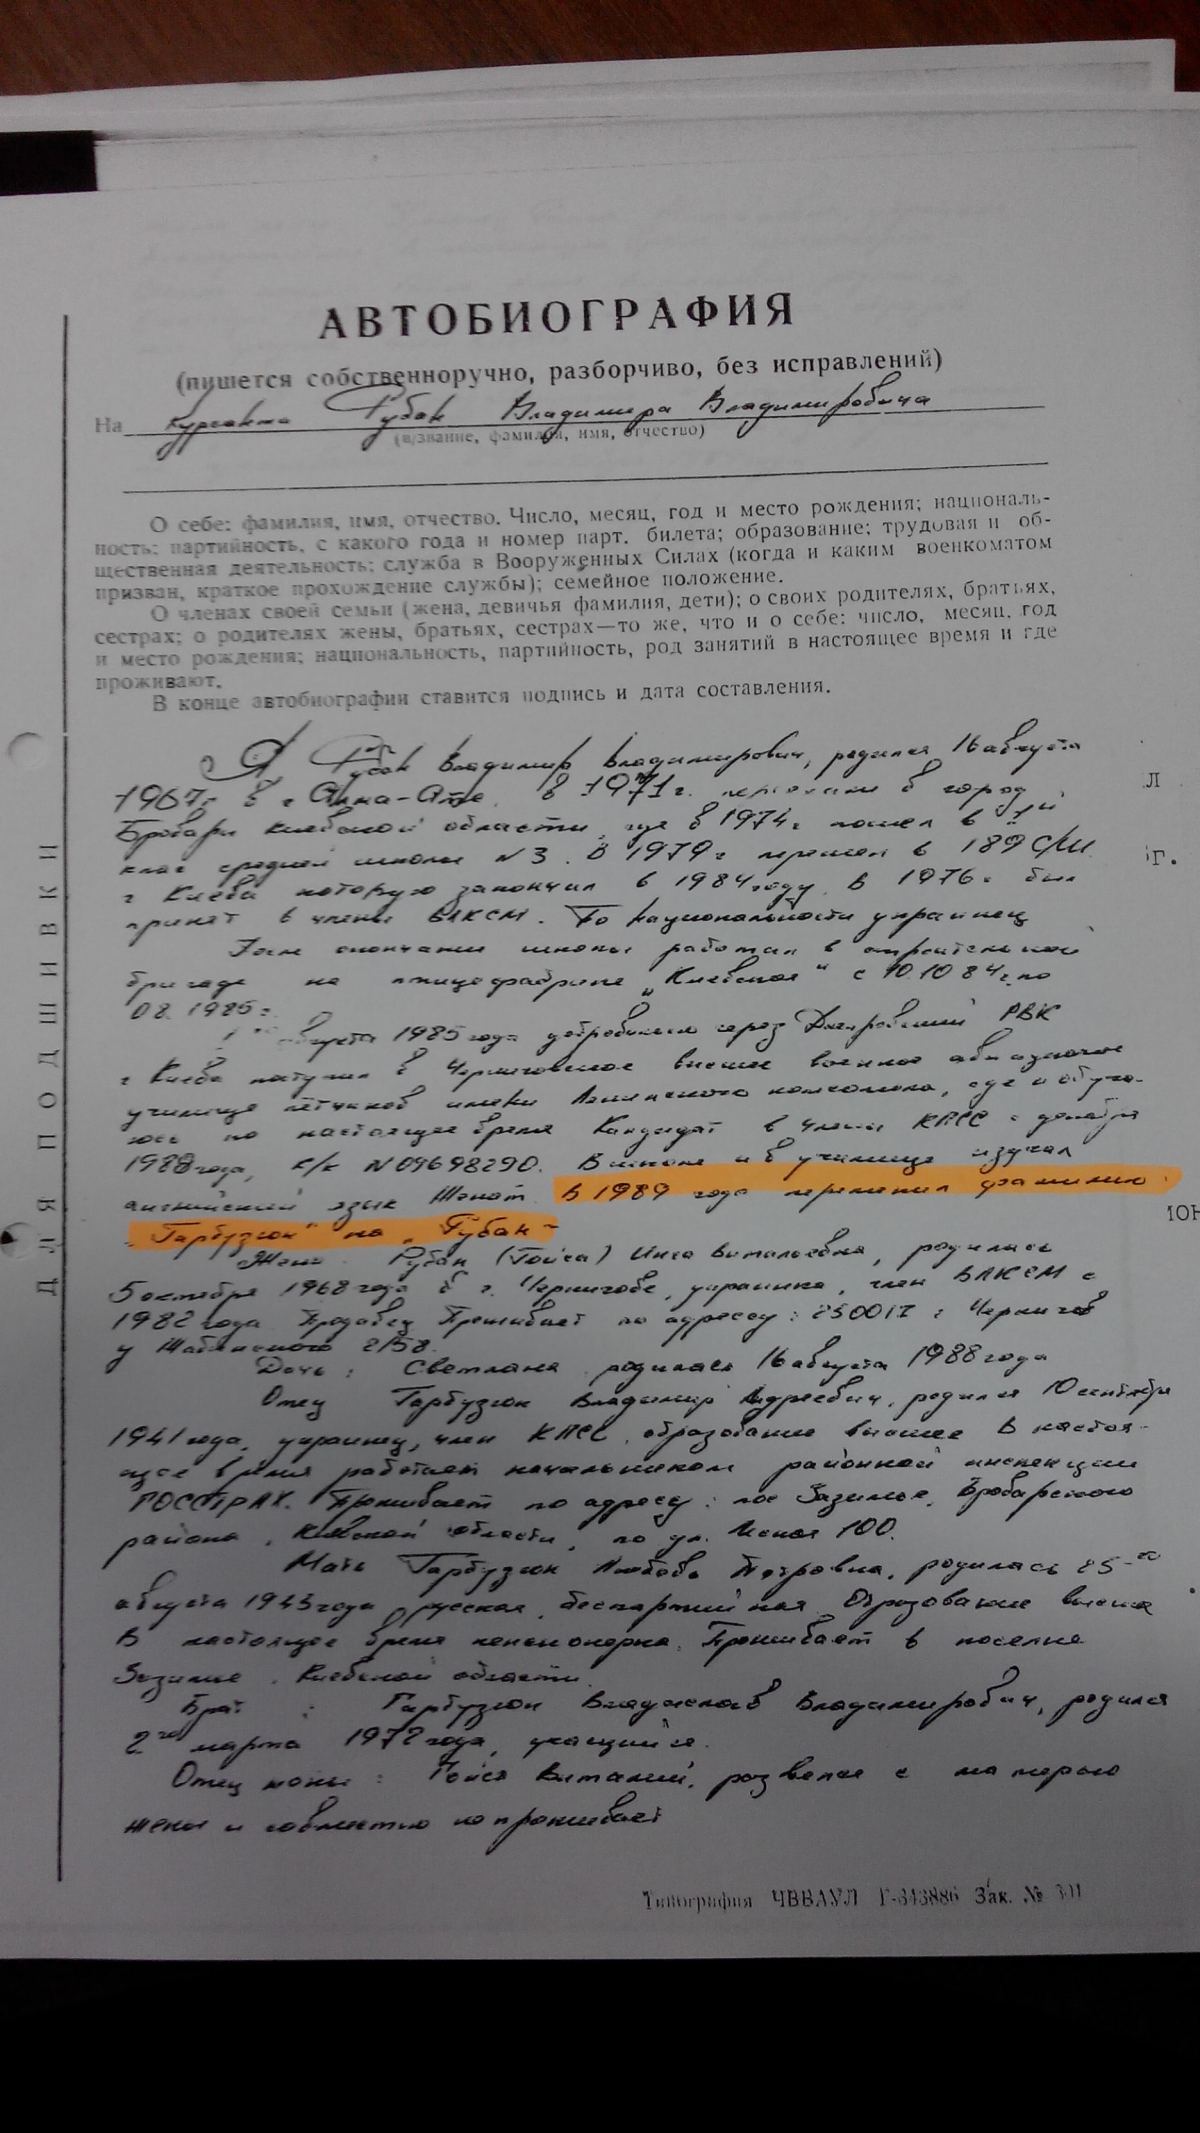 АВТОБИОГРАФИЯ
(пишется собственноручно, разборчиво, без исправлений)
На курсанта Рубан Владимира Владимировича
(в/звание, фамилия, имя, отчество)
О себе: фамилия, имя, отчество. Число, месяц, год и место рождения; националь-
ность; партийность, с какого года и номер парт. билета; образование; трудовая и об-
щественная деятельность; служба в Вооруженных Силах (когда и каким военкоматом
призван, краткое прохождение службы); семейное положение.
О членах своей семьи (жена, девичья фамилия, дети); о своих родителях, братьях,
сестрах; о родителях жены, братьях, сестрах—то же, что и о себе: число, месяц, год
и место рождения; национальность, партийность, род занятий в настоящее время и где
проживают.
В конце автобиографии ставится подпись и дата составления.
Я Рубан Владимир Владимирович, родился 16 августа
1967г. в г Алма-Ате. в 1971г. переехали в город
Бровари Киевской области, где в 1974г пошел в 1ый
клас средней школы N 3. В 1979г перешел в 189 С/Ш
г Киева которую закончил в 1984 году. в 1976г был
принят в члены ВЛКСМ. По национальности украинец
После окончания школы работал в строительной
бригаде на птицефабрике „Киевская" с 10.10 84г. по
08. 1985г.
августа 1985 года добровольно через Днепровский РВК
г Киева поступил в Черниговское высшее военное авиационное
училище лётчиков имени Ленинского комсомола, где и обуча-
юсь по настоящее время Кандидат в члены КПСС с декабря
1988 года, к/к N 09698290. В школе и в училище изучал
английский язык Женат. В 1989 году переменил фамилию
„Гарбузюк" на „Рубан"
Жена Рубан (Гойса) Инга Витальевна, родилась
5 октября 1968 года в г. Чернигове, украинка, член ВЛКСМ с
1982 года Продавец Проживает по адресу: 250017 г Чернигов
у 2/58.
Дочь: Светлана родилась 16 августа 1988 года
Отец Гарбузюк Владимир Андреевич, родился 10 сентября
1941 года, украинец, член КПСС, образование высшее В настоя-
щее время работает начальником районной инспекции
РОССТРАХ. Проживает по адресу: пос Зазимье, Броварского
района, Киевской области, по ул. 100.
Мать Гарбузюк Любовь Петровна, родилась 25-го
августа 1943 года, русская, беспартийная Образование высшее
В настоящее время пенсионерка. Проживает в поселке
Зазимье, Киевской области.
Брат: Гарбузюк Владислав Владимирович, родился
2го марта 1972 года, учащийся.
Отец жены: Гойса Виталий, розведен с матерью
жены и совместно не проживает
ДЛЯ ПОДШИВКИ
Типография ЧВВАУЛ Г-343886 Зак. № 301